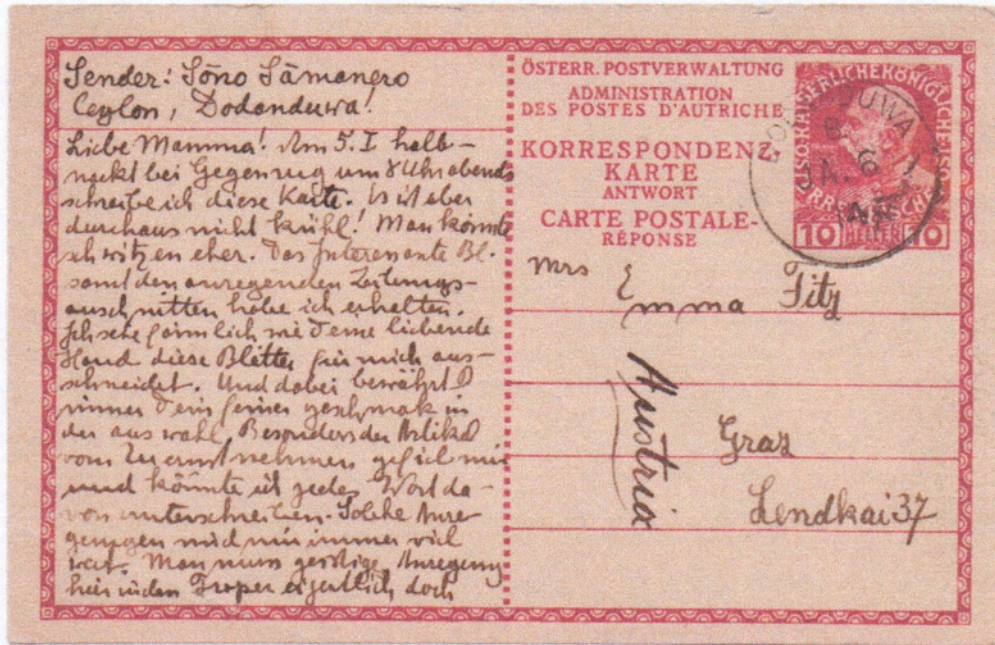 Sender: Sōno Sāmanero
Ceylon, Dodanduwa!
Liebe Mamma! Am 5. I halb-
nackt bei Gegenzug um 8 Uhr abends
schreibe ich diese Karte. Es ist aber
durchaus nicht kühl! Man könnte
schwitzen eher. Das Interessante Bl.
samt den anregenden Zeitungs-
ausschnitten habe ich erhalten.
Ich sehe förmlich wie Deine liebende
Hand diese Blätter für mich aus-
schneidet. Und dabei bewährt
immer Dein feiner geschmak in
der auswahl. Besonders der Artikel
vom Ernstnehmen gefiel mir
und könnte ich jedes Wort da-
von unterschreiben. Solche Anre-
gungen sind mir immer viel
wert. Man muss geistige Anregung
hier in den Tropen eigentlich doch
ÖSTERR. POSTVERWALTUNG
ADMINISTRATION
DES POSTES D'AUTRICHE
KORRESPONDENZ-
KARTE
ANTWORT
CARTE POSTALE-
RÉPONSE
10 HELLER 10
Mrs Emma Fitz
Austria
Graz
Lendkai 37